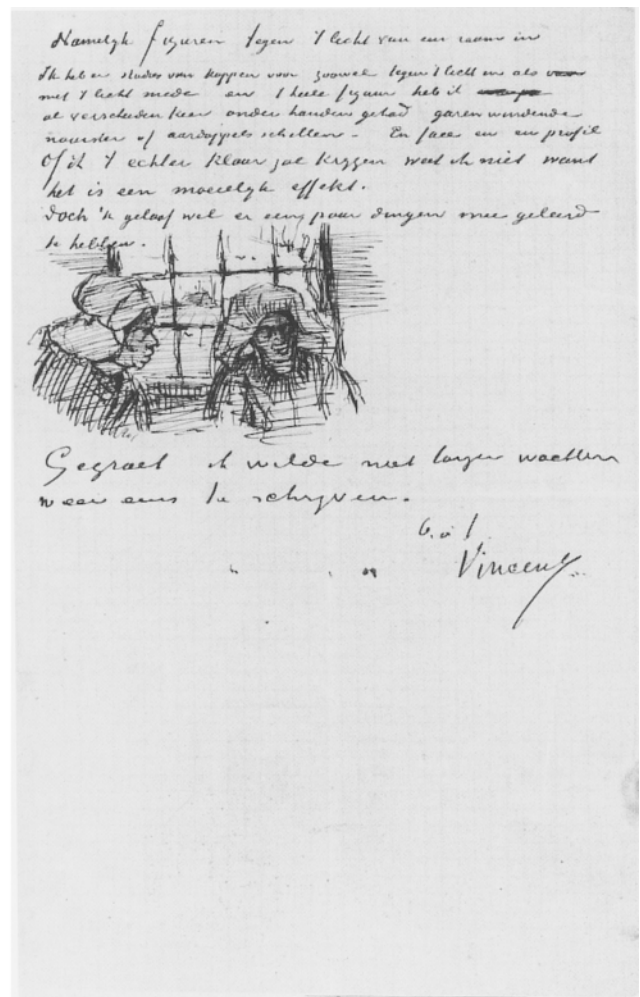 Namelyk figuren tegen 't licht van een raam in
Ik heb er studies van koppen voor zoowel tegen 't licht in als
met 't licht mede en 't heele figuur heb ik
al verscheiden keer onder handen gehad garen windende
naaister of aardappels schellen - En face en en profil
Of ik 't echter klaar zal krygen weet ik niet want
het is een moeielyk effekt.
Doch 'k geloof wel er een paar dingen mee geleerd
te hebben.
Gegroet ik wilde niet langer wachten
weer eens te schryven.
b. à t.
Vincent